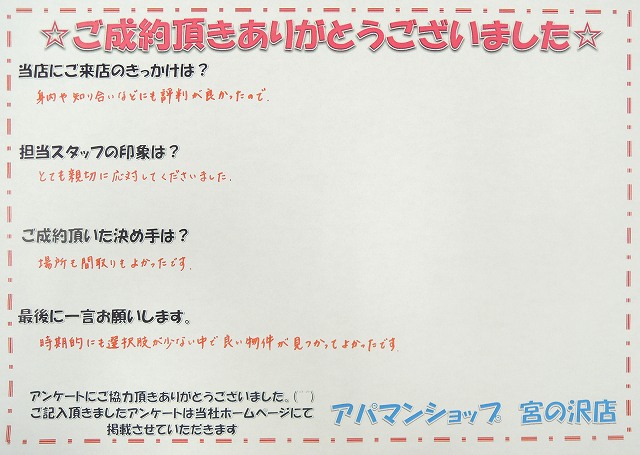 ☆ご成約頂きありがとうございました☆
当店にご来店のきっかけは？
身内や知り合いなどにも評判が良かったので.
担当スタッフの印象は？
とても親切に応対してくださいました.
ご成約頂いた決め手は？
場所も間取りもよかったです.
最後に一言お願いします。
時期的にも選択肢が少ない中で良い物件が見つかってよかったです.
アンケートにご協力頂きありがとうございました。(^^)
ご記入頂きましたアンケートは当社ホームページにて
掲載させていただきます
アパマンショップ 宮の沢店